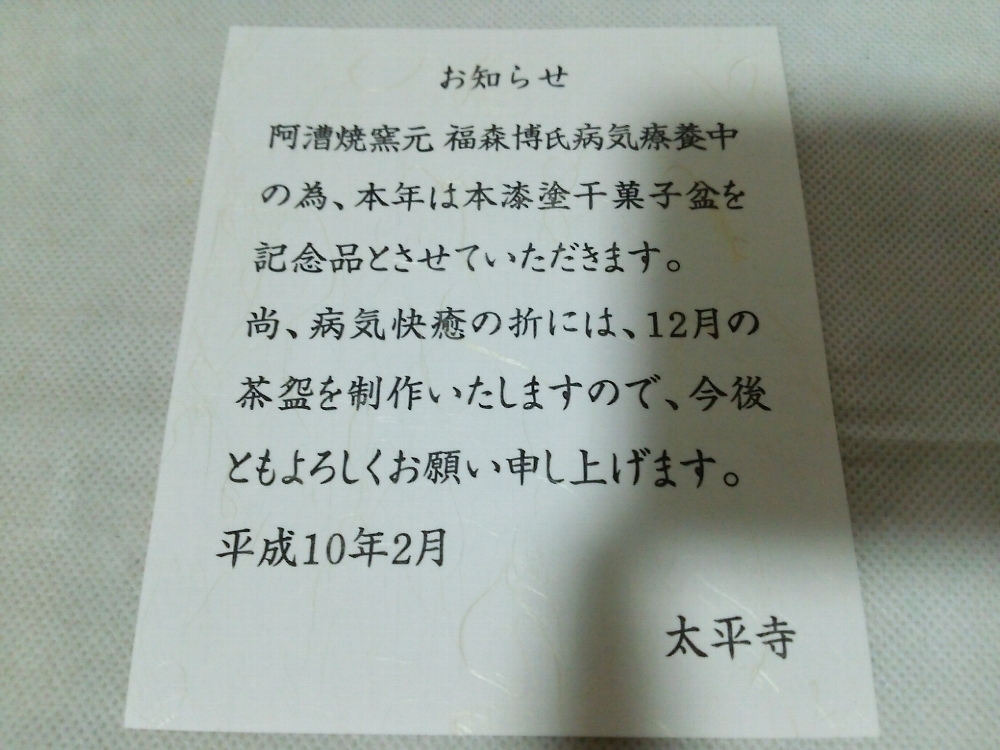 お知らせ
阿漕焼窯元 福森博氏病気療養中
の為、本年は本漆塗干菓子盆を
記念品とさせていただきます。
尚、病気快癒の折には、12月の
茶盌を制作いたしますので、今後
ともよろしくお願い申し上げます。
平成10年2月
太平寺